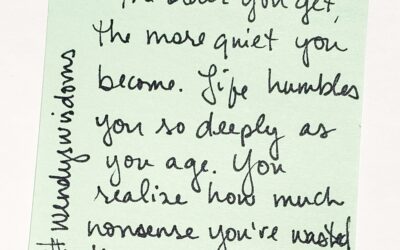 you get,
the more quiet you
become. Life humbles
you so deeply as
you age. You
realize how much
nonsense you've wasted
#wendyswisdoms